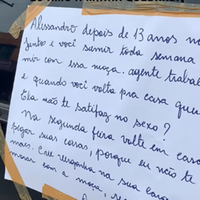 Alessandro depois de 13 anos no
junto e você sumir toda semana
mir com essa moça. agente trabal
e quando você volta pra casa que
Ela não te satifaz no sexo?
Na segunda feira volte em casa
pegar suas coisas, porque eu não te
mais. Essa na sua
morar com a moça,